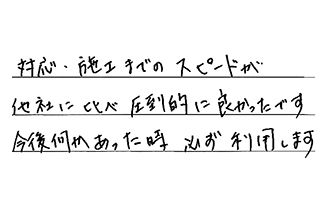 対応・施工までのスピードが
他社に比べ圧倒的に良かったです
今後何かあった時 必ず利用します